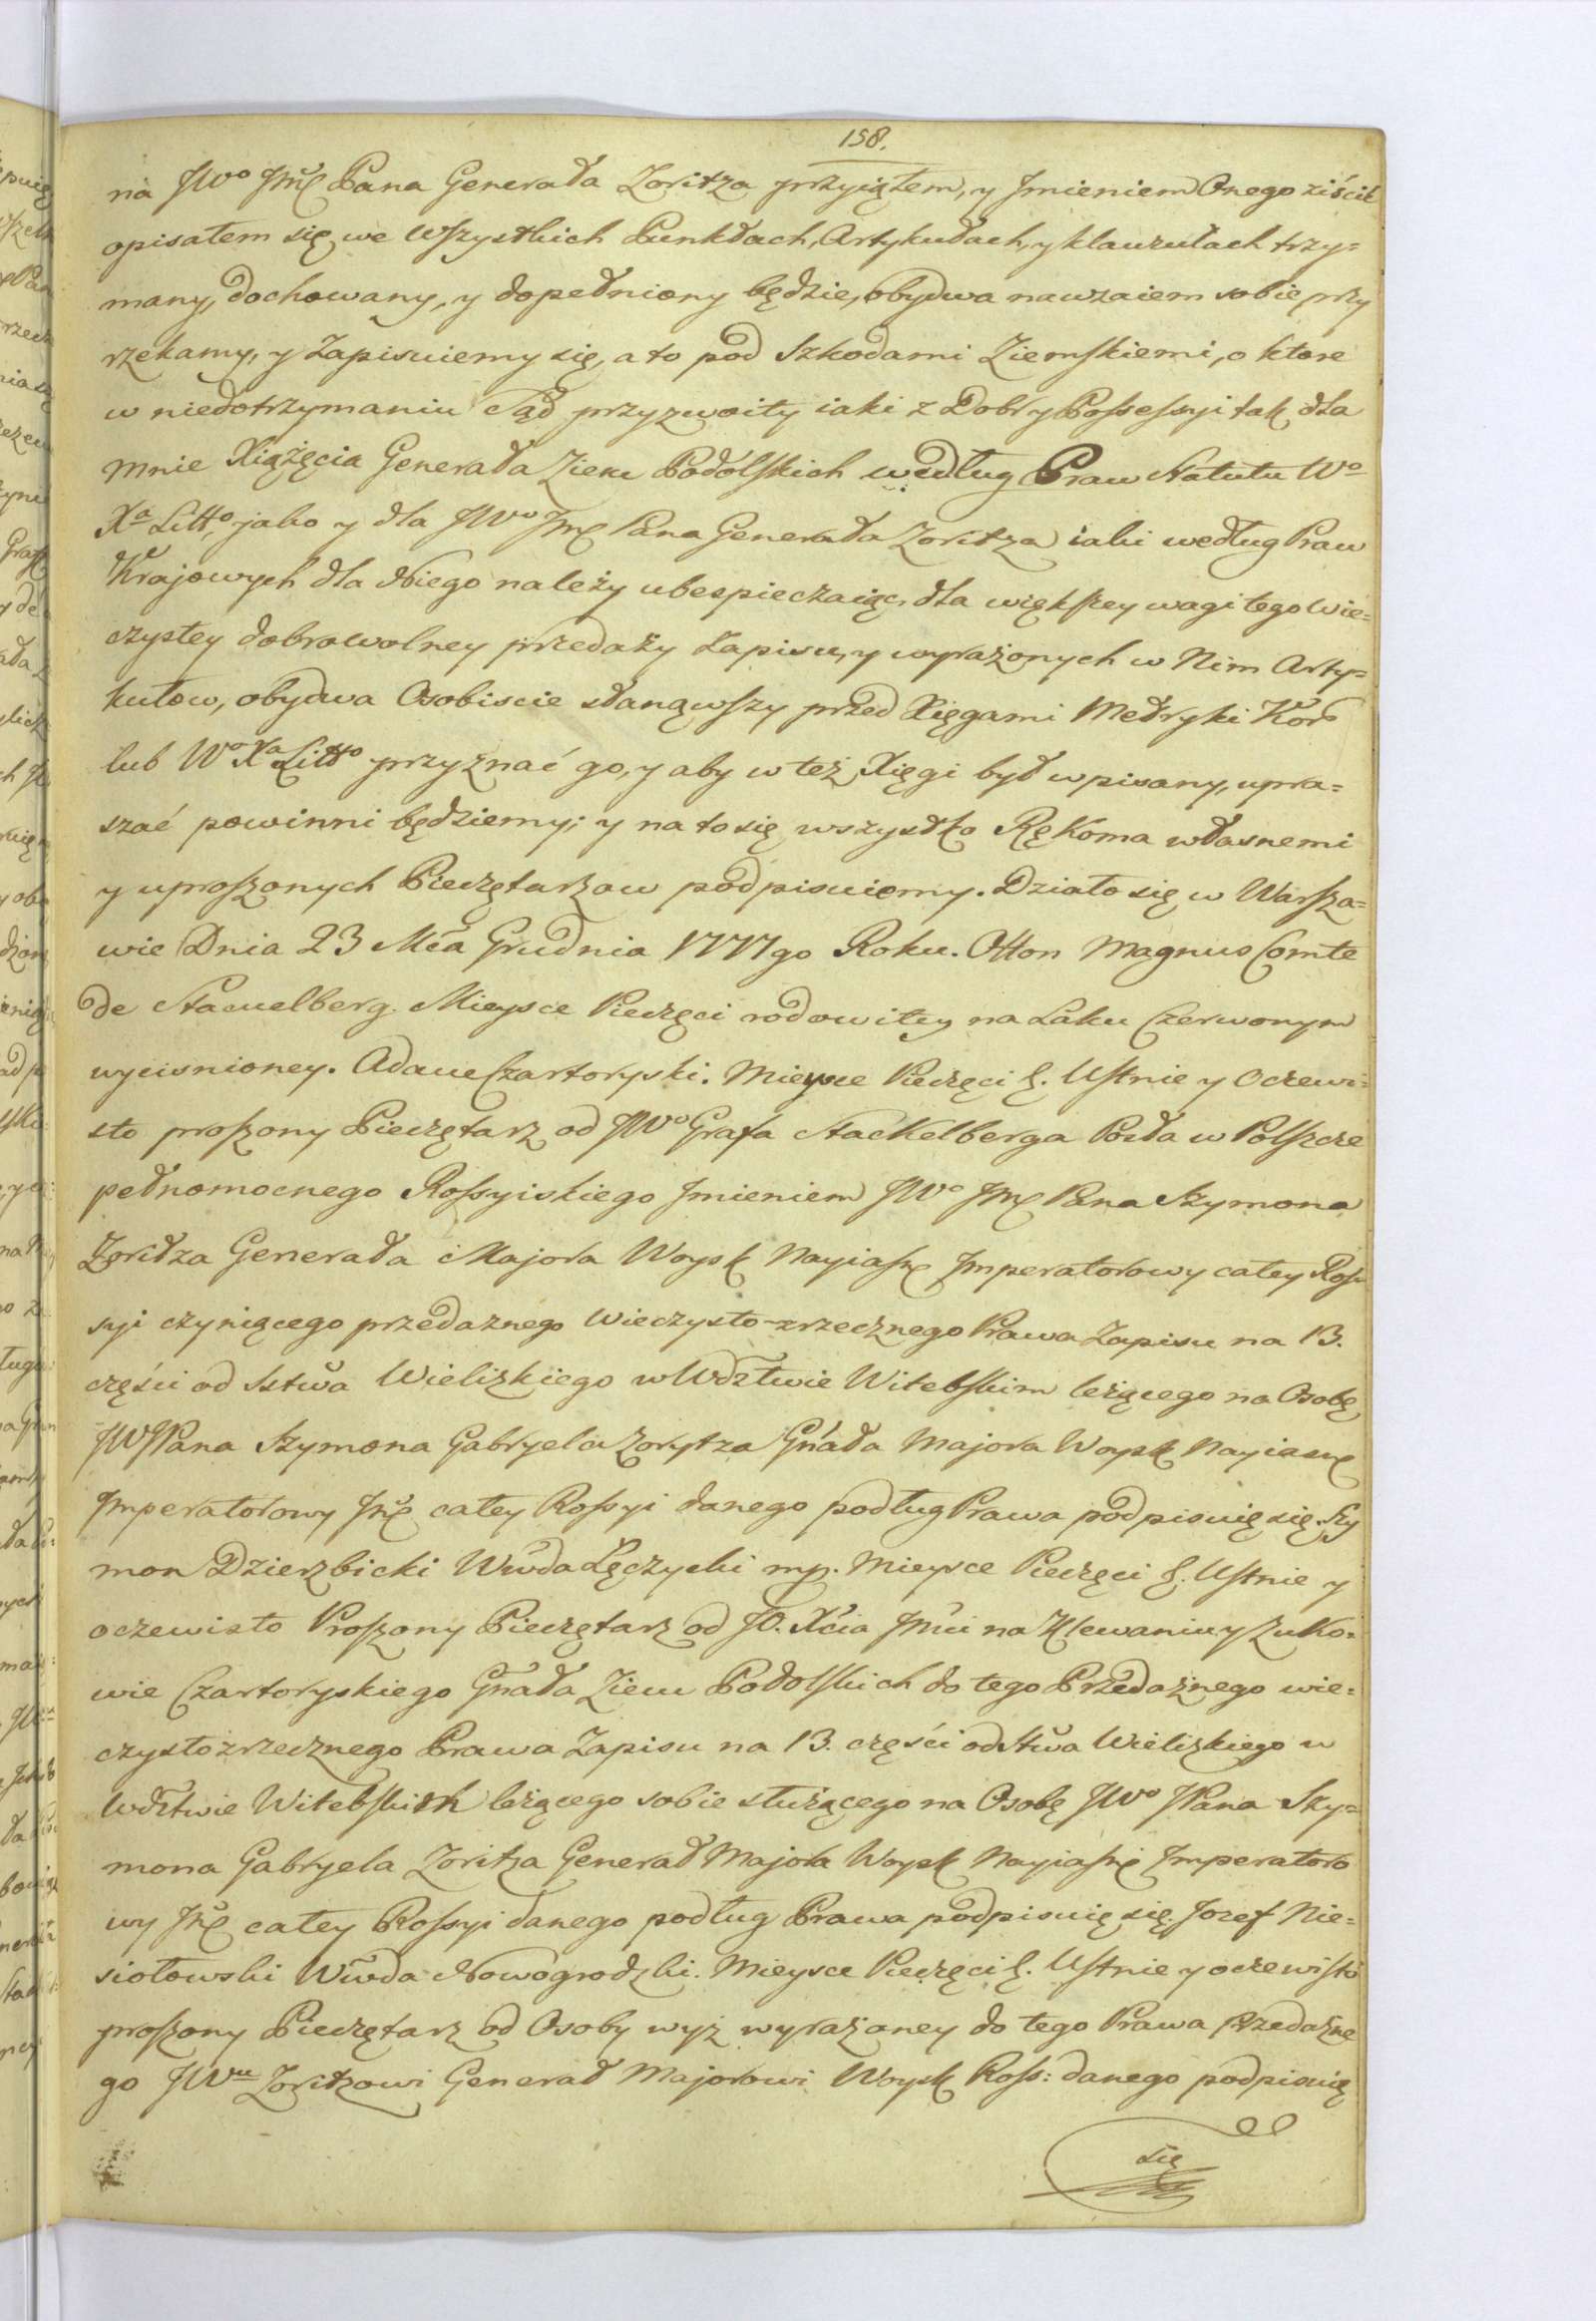 158.
na JWo Jmć Pana Generała Zoritza przyiąłem, y Jmieniem Onego ziścić
opisałem się, we Wszystkich Punktach, Artykułach, y klauzułach trzy=
many, dochowany, y dopełniony będzie, obydwa nawzaiem sobie przy
rzekamy, y Zapisuiemy się, a to pod Szkodami Ziemskiemi, o ktore
w niedotrzymaniu Sąd przyzwoity iaki z Dobr y Possessyi tak dla
mnie Xiążęcia Generała Ziem Podolskich według Praw Statutu Wo
Xa Litto, jako y dla JWo Jmć Pana Generała Zoritza iaki według Praw
Krajowych dla Niego należy ubespieczaiąc, dla większey wagi tego Wie=
czystey dobrowolney przedaży Zapisu, y wyrażonych w Nim Arty=
kułow, obydwa Osobiscie stanąwszy przed Xięgami Metryki Kor
lub Wo Xa Litto przyznać go, y aby w też Xięgi był wpisany, upra=
szać powinni będziemy; y na to się wszystko Rękoma własnemi
y uproszonych Pieczętarzow podpisuiemy. Działo się w Warsza=
wie Dnia 23 Mca Grudnia 1777go Roku. Otton Magnus Comte
de Stackelberg. Mieysce Pieczęci rodowitey na Laku Czerwonym
wycisnioney. Adam Czartoryski. Mieysce Pieczęci §. Ustnie y Oczewi=
sto proszony Pieczętarz od JWo Grafa Stackelberga Posła w Polszcze
pełnomocnego Rossyiskiego Jmieniem JWo Jmć Pana Szymona
Zoritza Generała Majora Woysk Nayiasnć Imperatorowy całey Ross
syi czyniącego przedaznego Wieczysto-zrzecznego Prawa Zapisu na 13.
części od Sstwa Wieliskiego w Wdztwie Witebskim leżącego na Osobę
JWJPana Szymona Gabryela Zorytza Gnała Majora Woysk Nayiasnć
Imperatorowy Jmć całey Rossyi danego podług Prawa podpisuię się. Szy
mon Dzierzbicki Wwda Łęczycki mp. Mieysce Pieczęci §. Ustnie y
oczewisto Proszony Pieczętarz od JO. Xcia Jmci na Klewaniu y Zuko=
wie Czartoryskiego Gnała Ziem Podolskich do tego Przedażnego wie=
czysto zrzecznego Prawa Zapisu na 13. części od Stwa Wieliskiego w
Wdztwie Witebskim leżącego sobie służącego na Osobę JWo JPana Szy=
mona Gabryela Zoritza Generał Majora Woysk Nayiasnć Imperatoro
wy Jmć całey Rossyi danego podług Prawa podpisuię się. Jozef Nie=
siołowski Wwda Nowogrodzki. Mieysce Pieczęci §. Ustnie y oczewisto
proszony Pieczętarz od Osoby wyż wyrażoney do tego Prawa Przedażne
go JWmu Zoritzowi Generał Majorowi Woysk Ross: danego podpisuię
się